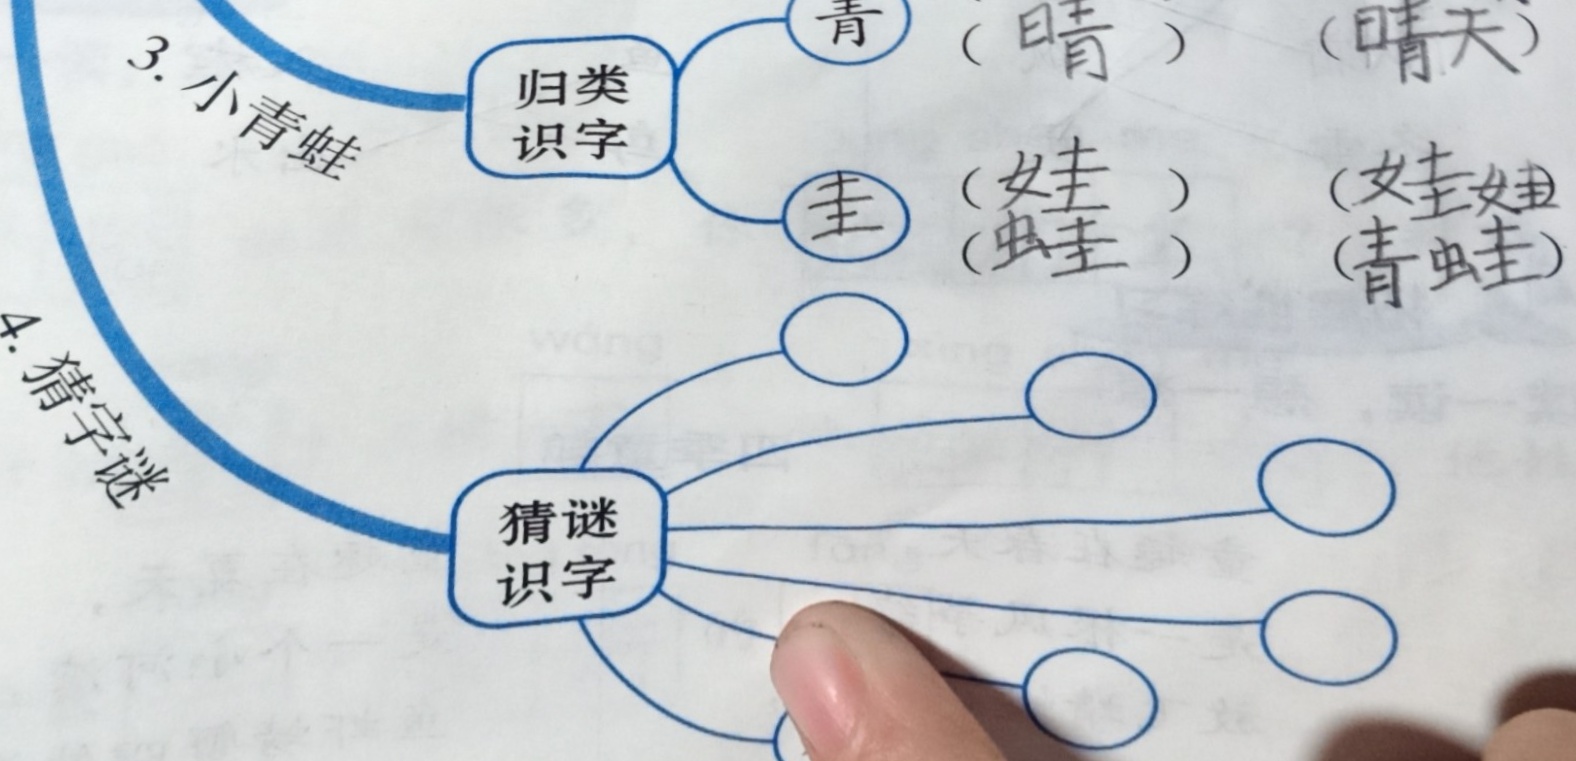 3. 小青蛙
归类
识字
青
（晴）
（晴天）
圭
（娃）
（娃娃）
（蛙）
（青蛙）
4. 猜字谜
猜谜
识字